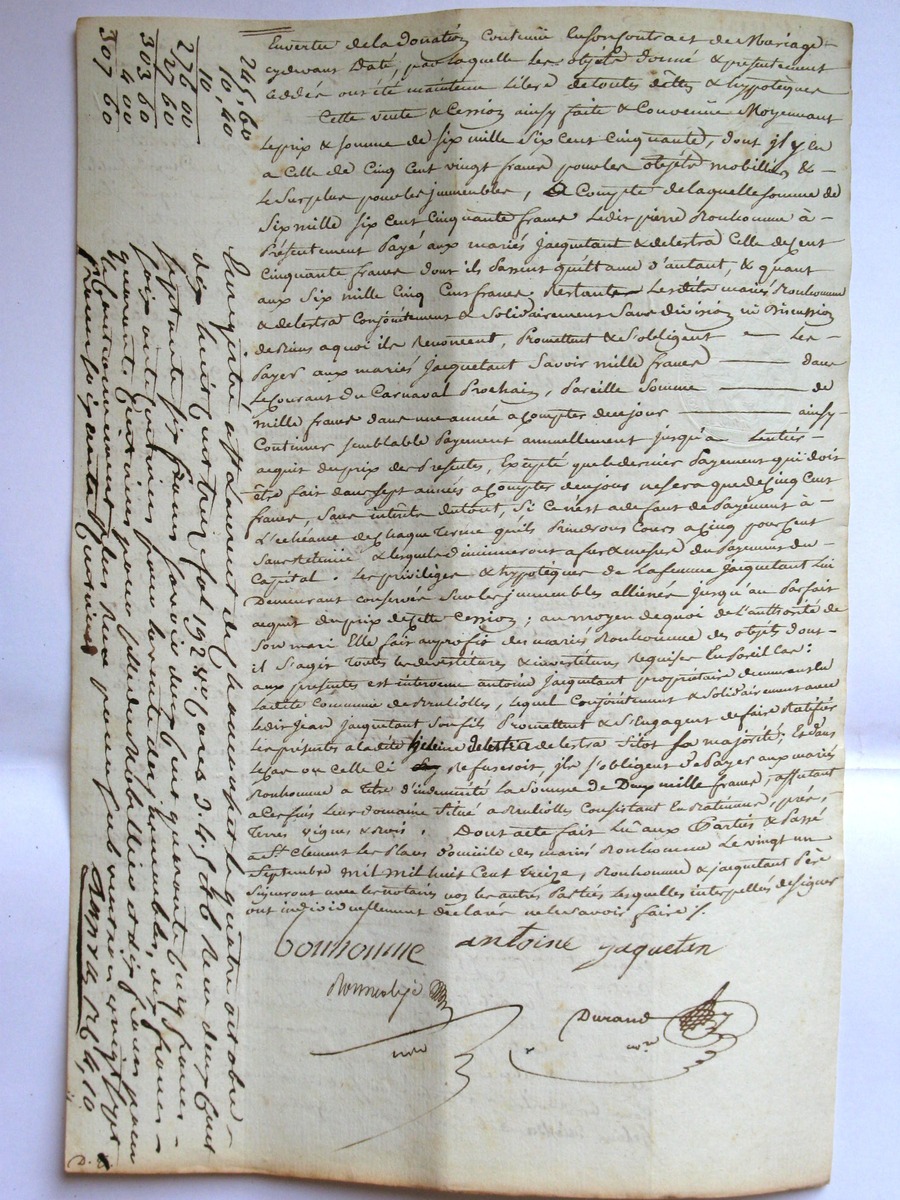 En vertu de la donation contenue En son contract de Mariage
cydevant Daté, par laquelle Les objets donné & présentement
cédés ont été maintenu Libre de toutes dettes & hypotèques
Cette vente & Cession ainsy faite & Convenüe Moyennant
Le prix & somme de six mille six cent cinquante, dont il y en
a Celle de Cinq Cent vingt francs pour les objets mobiliers &
Le Surplus pour les immeubles, a Compte de laquelle somme de
Six mille six cent Cinquante francs Ledit pierre Bonhomme à
Présentement Payé aux mariés Jacquetant & delestra Celle de cent
Cinquante francs dont ils Passent quittance d'autant, & quant
aux Six mille Cinq Cent francs Restants Lesdits mariés Bonhomme
& delestra Conjointement & Solidairement Sans division ni Discussion
de Biens a quoi ils Renoncent, Promettent & S'obligent Les
Payer aux mariés Jacquetant Savoir mille francs dans
Le Courant du Carnaval Prochain, Pareille Somme de
mille francs dans une année a Compter de ce jour ainsy
Continuer semblable Payement annuellement jusqu'a Lentier
acquit du prix des Presentes, Excepté que le dernier Payement qui doit
être fait dans Sept années a Compter de ce jour ne sera que de Cinq Cent
francs, Sans intérêts du tout, Si Ce n'est a defaut de Payement à
L'echéance de Chaque terme qu'ils Prendront Cours a Cinq pour Cent
Sans Retenüe & lesquels diminueront a fur & mesure du Payement du
Capital. Les privilèges & hypotèques de la femme Jacquetant Lui
Demeurant conservés Sur les immeubles alliénés Jusqu'au Parfait
acquit du prix de cette Cession; au moyen de quoi de l'authorité de
Son mari Elle fait au profit des mariés Bonhomme des objets dont
il S'agit Toutes les devestitures & investitures Requises En Pareil Cas.
aux presentes est intervenu antoine Jacquetant propriétaire demeurant En
Ladite Commune de , Lequel Conjointement & Solidairement avec
Ledit Jean Jacquetant Son fils Promettent & S'Engagent de faire Ratifier
Les presentes a ladite delestra Sitot Sa majorité, & dans
Le Cas ou Celle Ci Refuseroit, ils S'obligent de Payer aux mariés
Bonhomme a Titre d'indemnité La Somme de Deux mille francs, affectant
a Ces fins Leur domaine Situé a Consistant En Batiment, prés,
Terres vignes & Bois. Dont acte fait Lû aux Parties & Passé
a St. Clement Les Places domicile des mariés Bonhomme Le vingt un
Septembre Mil huit Cent treize, Bonhomme & Jacquetant Père
Signeront avec les notaires nos les autres Parties Lesquelles interpellés de Signer
ont individuellement déclaré ne le Savoir faire /.
bonhomme antoine jaquetan
Durand
nore
nore
245,60
10,40
10
276 00
27 60
303 60
4 00
307 60
Enregistré a le quatre octobre
dix huit cent treize fol 192 Reçu deux Cent
septante six francs savoir deux Cent quarante cinq francs
soixante Centimes pour la vente des immeubles, dix francs
quarante Centimes pour celle du mobilier et dix francs pour
le Cautionnement plus Reçu pour vingt sept
francs soixante Centimes